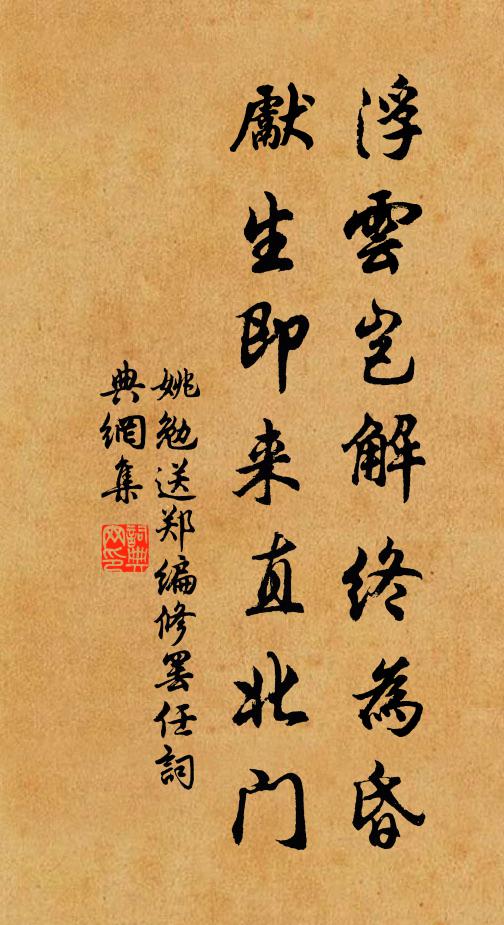 浮雲岂解終為昏
獻生即来直北门
姚勉送郑编修罢任詞
典網集
詞典网印